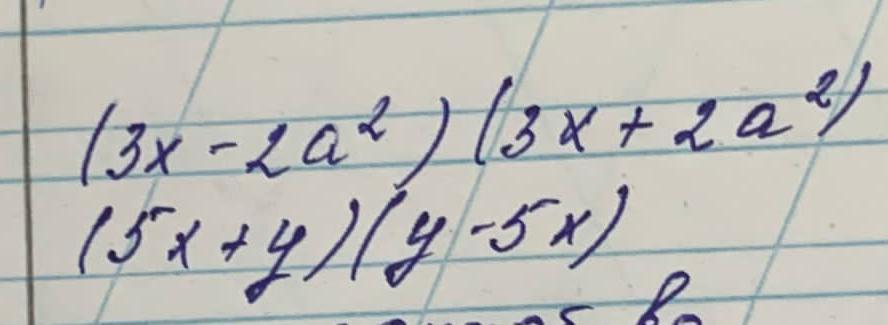 (3x - 2a²)(3x + 2a²)
(5x + y)(y - 5x)